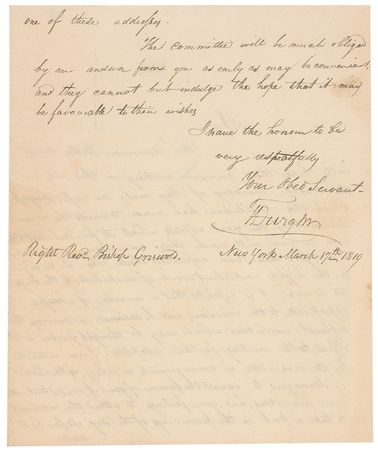 one of these addresses.
The committee will be much obliged
by an answer from you as early as may be convenient,
and they cannot but indulge the hope that it may
be favourable to their wishes
I have the honour to be
very respectfully
Your Obed Servant
Right Revd. Bishop Griswold.
New York March 17th 1819